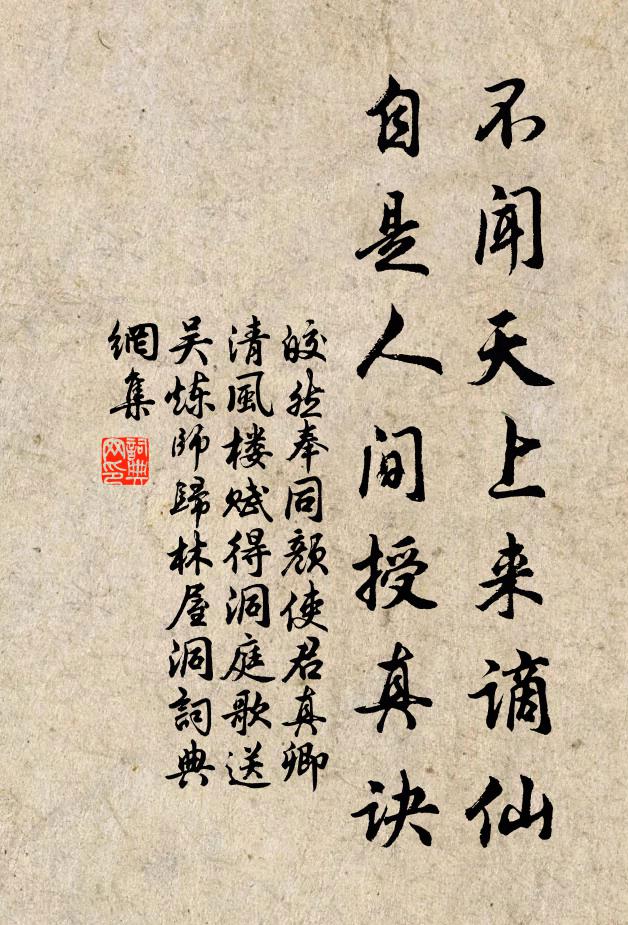 不闻天上来谪仙
自是人间授真诀
皎然奉同颜使君真卿
清風楼赋得洞庭歌送
吴炼师歸林屋洞詞典
網集
詞典
网印